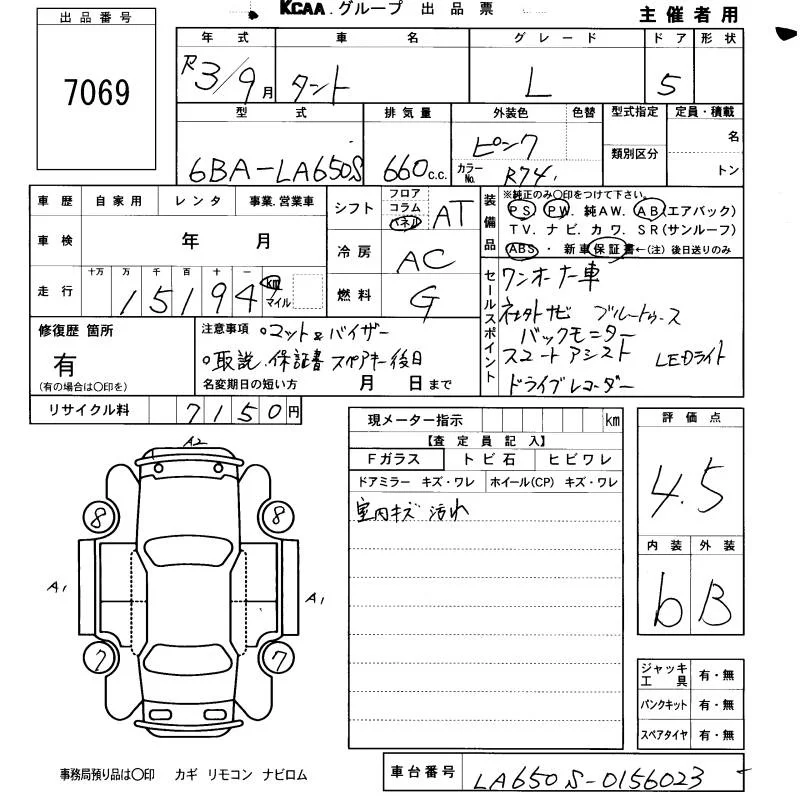 KCAA.グループ 出品票
主催者用
出品番号
7069
年式 車名 グレード ドア 形状
R3/9月 タント L 5
型式 排気量 外装色 色替 型式指定 定員・積載
6BA-LA650S 660c.c. ピンク 類別区分 名
カラーNo. R74 トン
車歴 自家用 レンタ 事業.営業車
車検 年 月
走行 十万 万 千 百 十 一 km マイル
15194
シフト フロア コラム パネル AT
冷房 AC
燃料 G
装備品
※純正のみ○印をつけて下さい。
PS PW. 純AW. AB(エアバック)
TV. ナビ. カワ. SR(サンルーフ)
ABS ・ 新車保証書←(注) 後日送りのみ
セールスポイント
ワンオーナー車
社外ナビ ブルートゥース
バックモニター
スマートアシスト LEDライト
ドライブレコーダー
修復歴 箇所
有
(有の場合は○印を)
注意事項 ○マット&バイザー
○取説.保証書 スペアキー後日
名変期日の短い方 月 日まで
リサイクル料 7150円
現メーター指示 km
【査定員記入】
Fガラス トビ石 ヒビワレ
ドアミラー キズ・ワレ ホイール(CP) キズ・ワレ
室内キズ 汚れ
評価点
4.5
内装 外装
b B
A2
8 8
A1 A1
7 7
ジャッキ工具 有・無
パンクキット 有・無
スペアタイヤ 有・無
事務局預り品は○印 カギ リモコン ナビロム
車台番号 LA650S-0156023